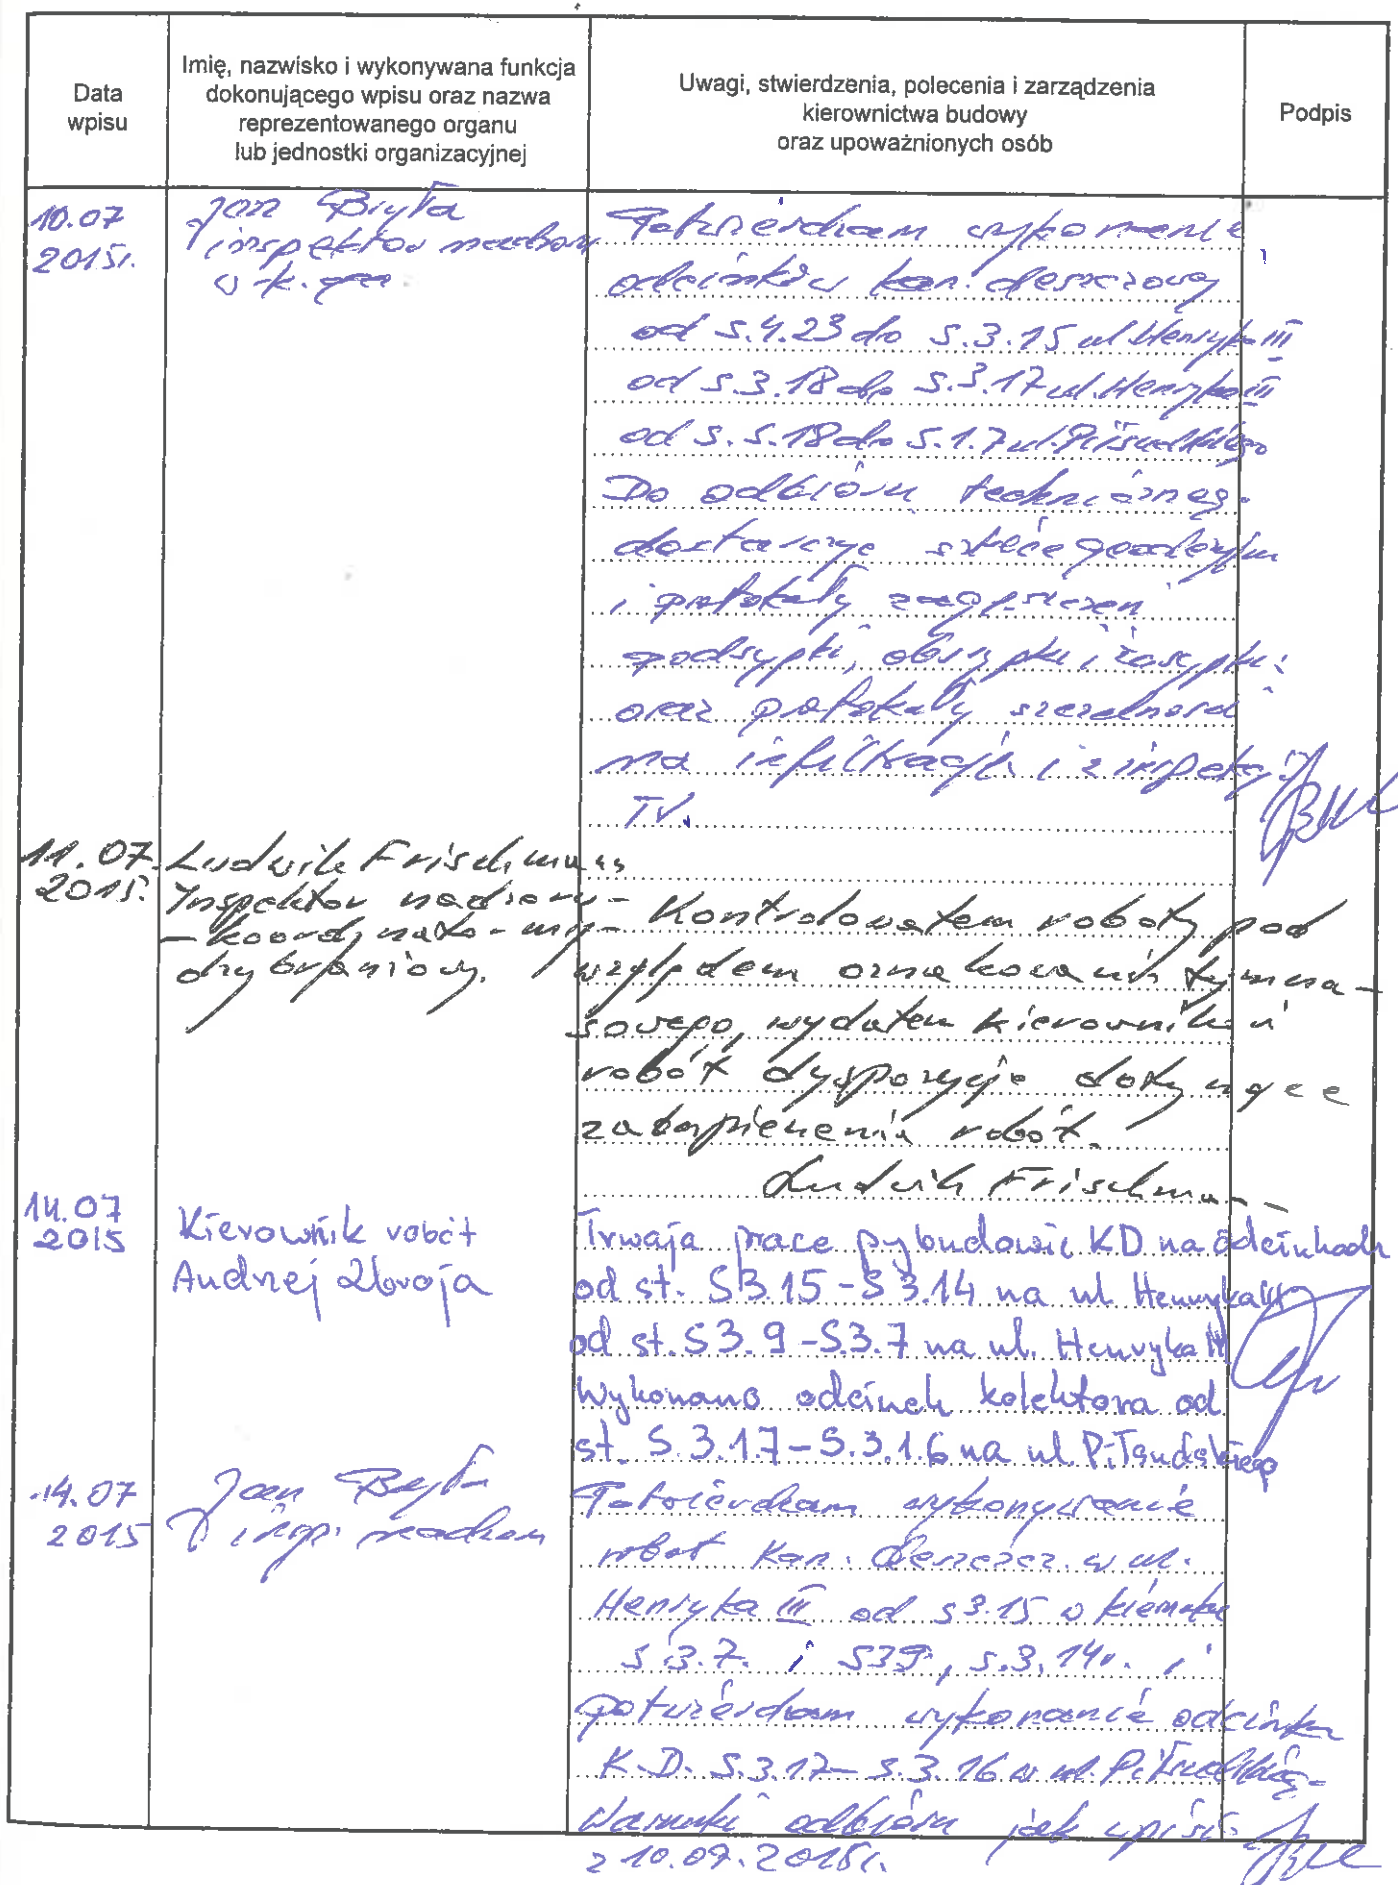 Data
wpisu
Imię, nazwisko i wykonywana funkcja
dokonującego wpisu oraz nazwa
reprezentowanego organu
lub jednostki organizacyjnej
Uwagi, stwierdzenia, polecenia i zarządzenia
kierownictwa budowy
oraz upoważnionych osób
Podpis
10.07
2015r.
Jan Bryła
inspektor nadzoru
Potwierdzam wykonanie
odcinków kan. deszczowej
od S.4.23 do S.3.15 ul. Henryka III
od S.3.18 do S.3.17 ul. Henryka III
od S.S.18 do S.1.7 ul. Piłsudskiego
Do odbioru technicznego
dostarczyć
i protokoły zagęszczeń
podsypki, obsypki i zasypki
oraz protokoły szczelności
na infiltrację i z inspekcji
TV.
11.07.
2015r.
Ludwik Frischmann
Inspektor nadzoru -
- koordynator mię-
dzybranżowy.
Kontrolowałem roboty pod
względem oznakowania tymcza-
sowego, wydałem kierownikowi
robót dyspozycje dotyczące
zabezpieczenia robót.
Ludwik Frischmann
14.07
2015
Kierownik robót
Andrzej Zbroja
Trwają prace przy budowie KD na odcinkach
od st. S3.15 - S3.14 na ul. Henryka III
od st. S3.9 - S.3.7 na ul. Henryka III
Wykonano odcinek kolektora od
st. S.3.17 - S.3.16 na ul. Piłsudskiego
14.07
2015
Jan Bryła
insp. nadzoru
Potwierdzam wykonywanie
robót kan. deszcz. w ul.
Henryka III od S3.15 w kierunku
S.3.7. i S39, S.3.14. i
potwierdzam wykonanie odcinka
K.D. S.3.17 - S.3.16 w ul. Piłsudskiego
Warunki odbioru jak wpis
z 10.07.2015r.